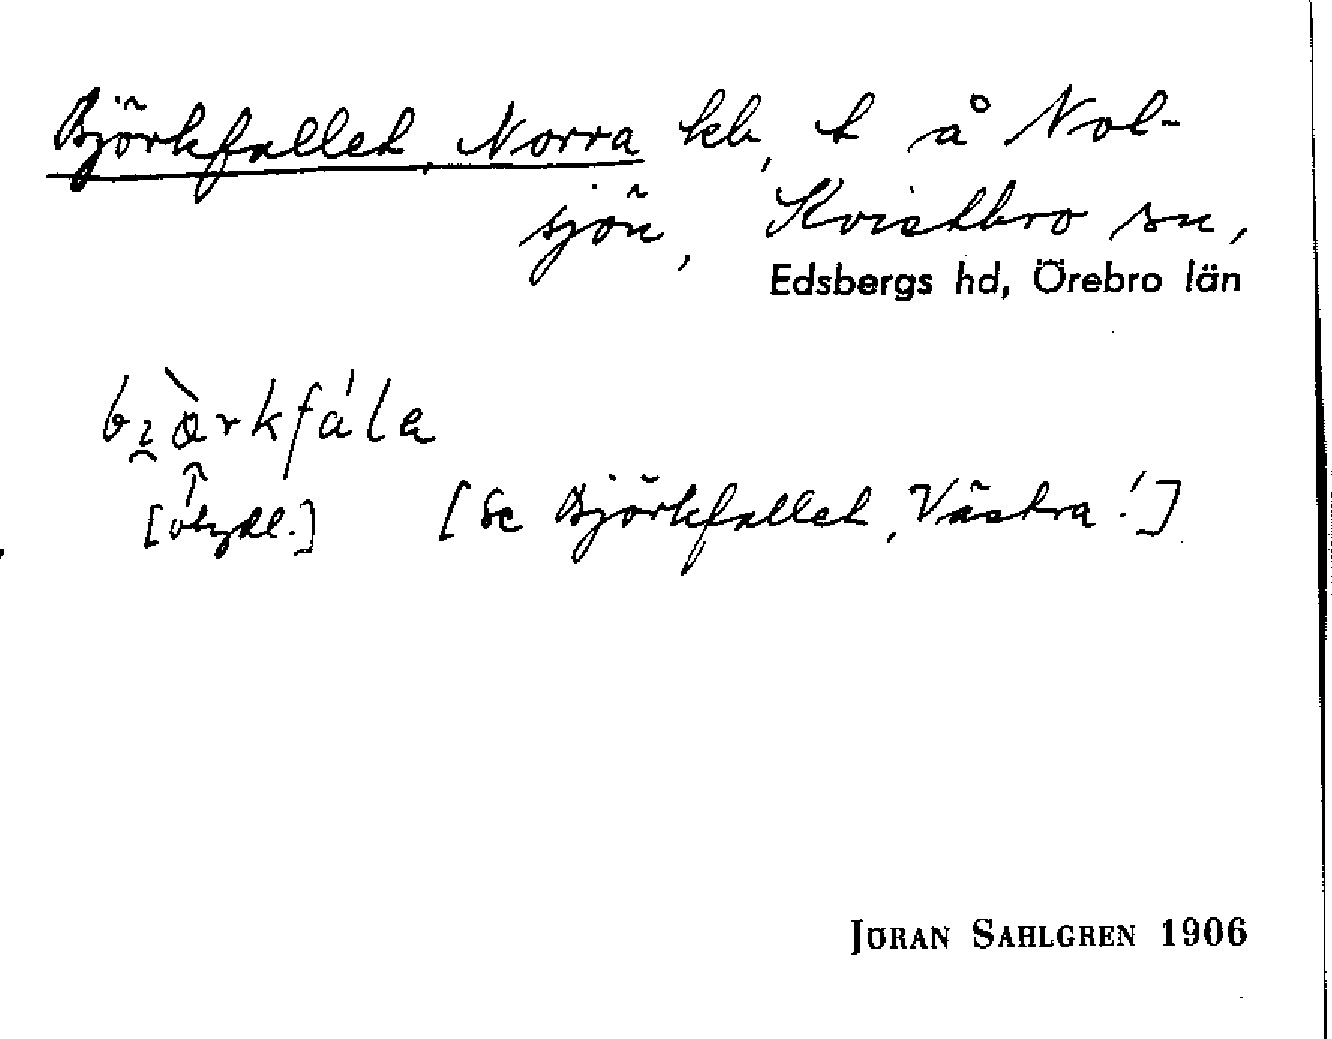 Björkfallet, Norra hb, t å Nol-
sjön, Kvistbro sn,
Edsbergs hd, Örebro län
bi̯ὰrkfála
[otydl.] [Se Björkfallet, Västra!]
JÖRAN SAHLGREN 1906